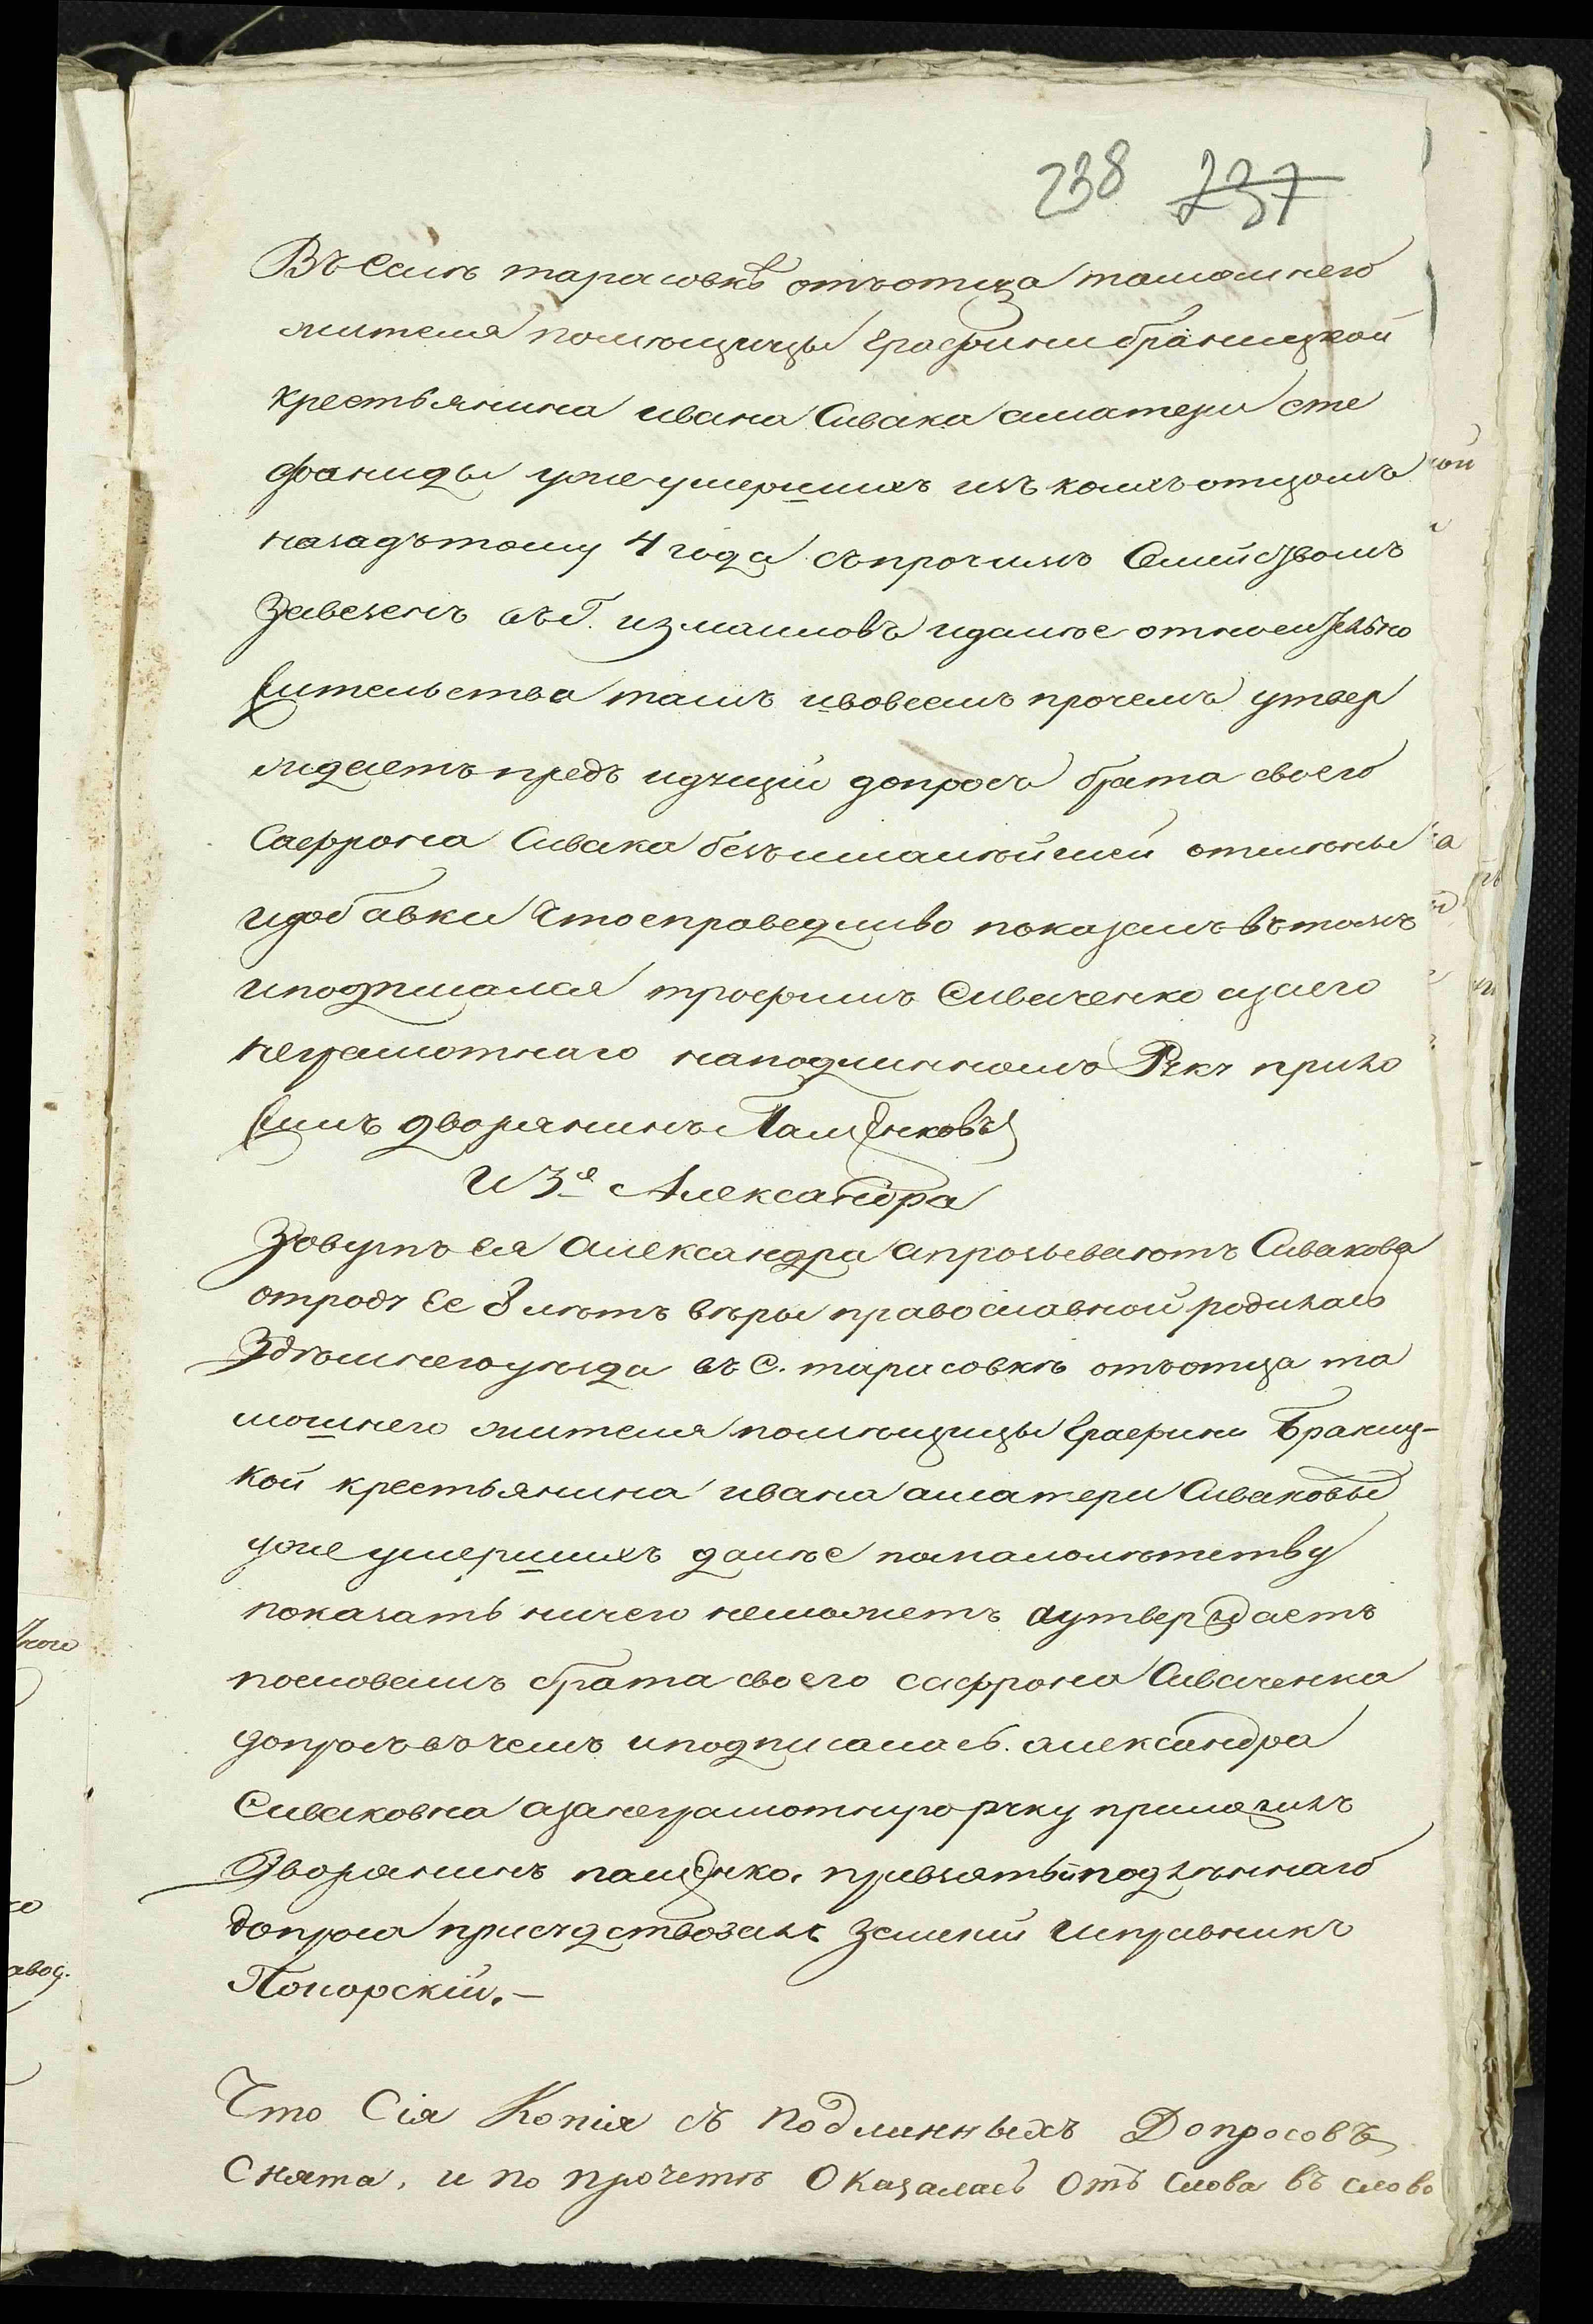 238 237
Въ Селѣ тарасовкѣ отъ отца тамошнего
жителя помѣщицы Графини браницкой
крестьянина ивана Сивака а матери сте
фаниды уже умершихъ изъ коихъ отцомъ
назадъ тому 4 года съ прочимъ Семействомъ
Завезенъ въ г. измаиловъ и далѣе относительно
жительства тамъ и вовсемъ прочемъ утвер
ждаетъ предъ идущій допросъ брата своего
Сафрона Сивака безъ малѣйшей отмѣны
и добавки Что справедливо показалъ въ томъ
и подписался трофимъ Сиваченко а за его
неграмотнаго на подлинномъ Руку прило
жилъ дворянинъ Пащенковъ
И 3я Александра
Зовутъ ея Александра а прозываютъ Сивакова
отроду Ее 8 лѣтъ вѣры православной родилась
Здѣшнего уезда въ С. тарасовкѣ отъ отца та
мошнего жителя помѣщицы Графини Браниц-
кой крестьянина ивана а матери Сиваковы
уже умершихъ далѣе по малолѣтству
показать ничего неможетъ а утверждаетъ
по словамъ брата своего сафрона Сиваченка
допросъ въ чемъ и подписалась. александра
Сиваковна а за неграмотную руку приложилъ
Дворянинъ пащенко. при взятьи подлѣннаго
допроса присудствовалъ Земскій Исправникъ
Погорскій.—
Что Сія Копія съ подлинныхъ Допросовъ
Снята, и по прочетѣ Оказалась Отъ слова въ слово